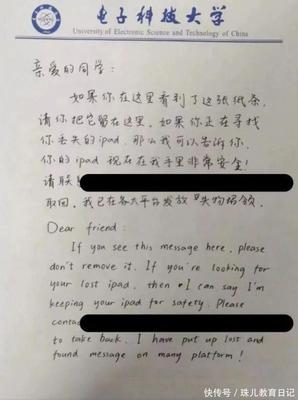 电子科技大学
University of Electronic Science and Technology of China
亲爱的同学：
如果你在这里看到了这张纸条，
请你把它留在这里。如果你正在寻找
你丢失的ipad，那么我可以告诉你，
你的ipad现在在我手里非常安全！
请联
取回，我已在各大平台发放失物招领。
Dear friend:
If you see this message here, please
don't remove it. If you're looking for
your lost ipad, then I can say I'm
keeping your ipad for safety. Please
contac
to take back. I have put up lost and
found message on many platform!
快传号 / 珠儿教育日记